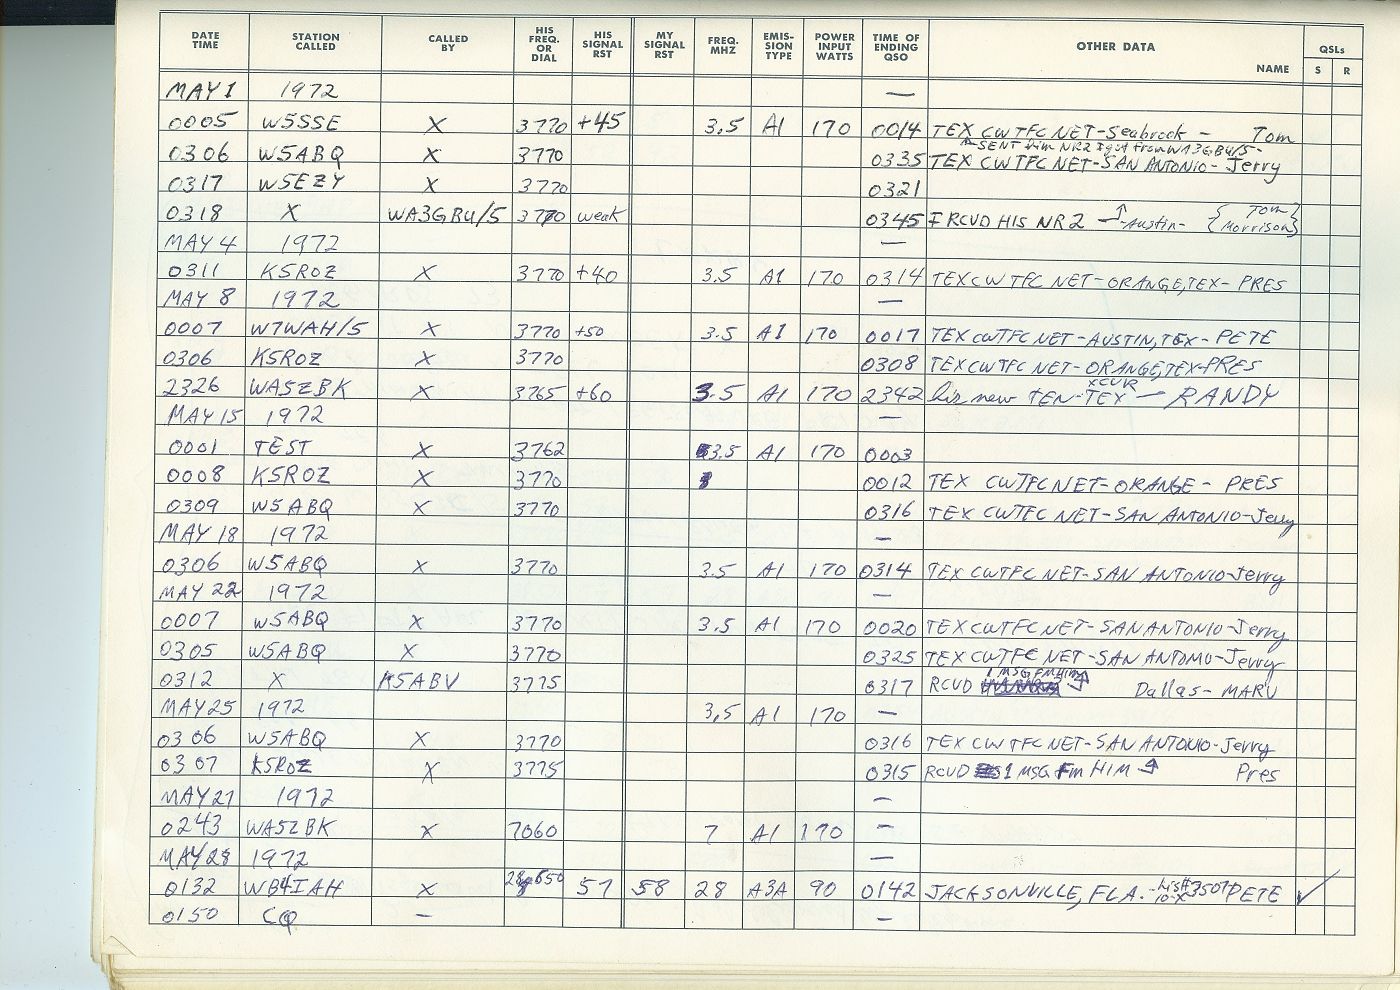 DATE TIME STATION CALLED CALLED BY HIS FREQ. OR DIAL HIS SIGNAL RST MY SIGNAL RST FREQ. MHZ EMIS- SION TYPE POWER INPUT WATTS TIME OF ENDING QSO OTHER DATA NAME QSLs S R
MAY 1 1972 —
0005 W5SSE X 3770 +45 3.5 A1 170 0014 TEX CW TFC NET - Seabrook - Tom
SENT him NR2 I got from WA3GBU/5 -
0306 W5ABQ X 3770 0335 TEX CW TFC NET - SAN ANTONIO - Jerry
0317 W5EZY X 3770 0321
0318 X WA3GBU/5 3770 weak 0345 I RCVD HIS NR 2 - Austin - { Tom Morrison }
MAY 4 1972 —
0311 K5ROZ X 3770 +40 3.5 A1 170 0314 TEX CW TFC NET - ORANGE, TEX - PRES
MAY 8 1972 —
0007 W7WAH/5 X 3770 +50 3.5 A1 170 0017 TEX CW TFC NET - AUSTIN, TEX - PETE
0306 K5ROZ X 3770 0308 TEX CW TFC NET - ORANGE, TEX - PRES
2326 WA5ZBK X 3765 +60 3.5 A1 170 2342 his new TEN-TEX XCVR — RANDY
MAY 15 1972 —
0001 TEST X 3762 3.5 A1 170 0003
0008 K5ROZ X 3770 0012 TEX CW TFC NET - ORANGE - PRES
0309 W5ABQ X 3770 0316 TEX CW TFC NET - SAN ANTONIO - Jerry
MAY 18 1972 —
0306 W5ABQ X 3770 3.5 A1 170 0314 TEX CW TFC NET - SAN ANTONIO - Jerry
MAY 22 1972 —
0007 W5ABQ X 3770 3.5 A1 170 0020 TEX CW TFC NET - SAN ANTONIO - Jerry
0305 W5ABQ X 3770 0325 TEX CW TFC NET - SAN ANTONIO - Jerry
0312 X K5ABV 3775 0317 RCVD 1 MSG FM HIM Dallas - MARV
MAY 25 1972 3.5 A1 170 —
0306 W5ABQ X 3770 0316 TEX CW TFC NET - SAN ANTONIO - Jerry
0307 K5ROZ X 3775 0315 RCVD 1 MSG Fm HIM Pres
MAY 27 1972 —
0243 WA5ZBK X 7060 7 A1 170 —
MAY 28 1972 —
0132 WB4IAH X 28,650 57 58 28 A3A 90 0142 JACKSONVILLE, FLA. - his # 10-X 3507 PETE ✓
0150 CQ — —